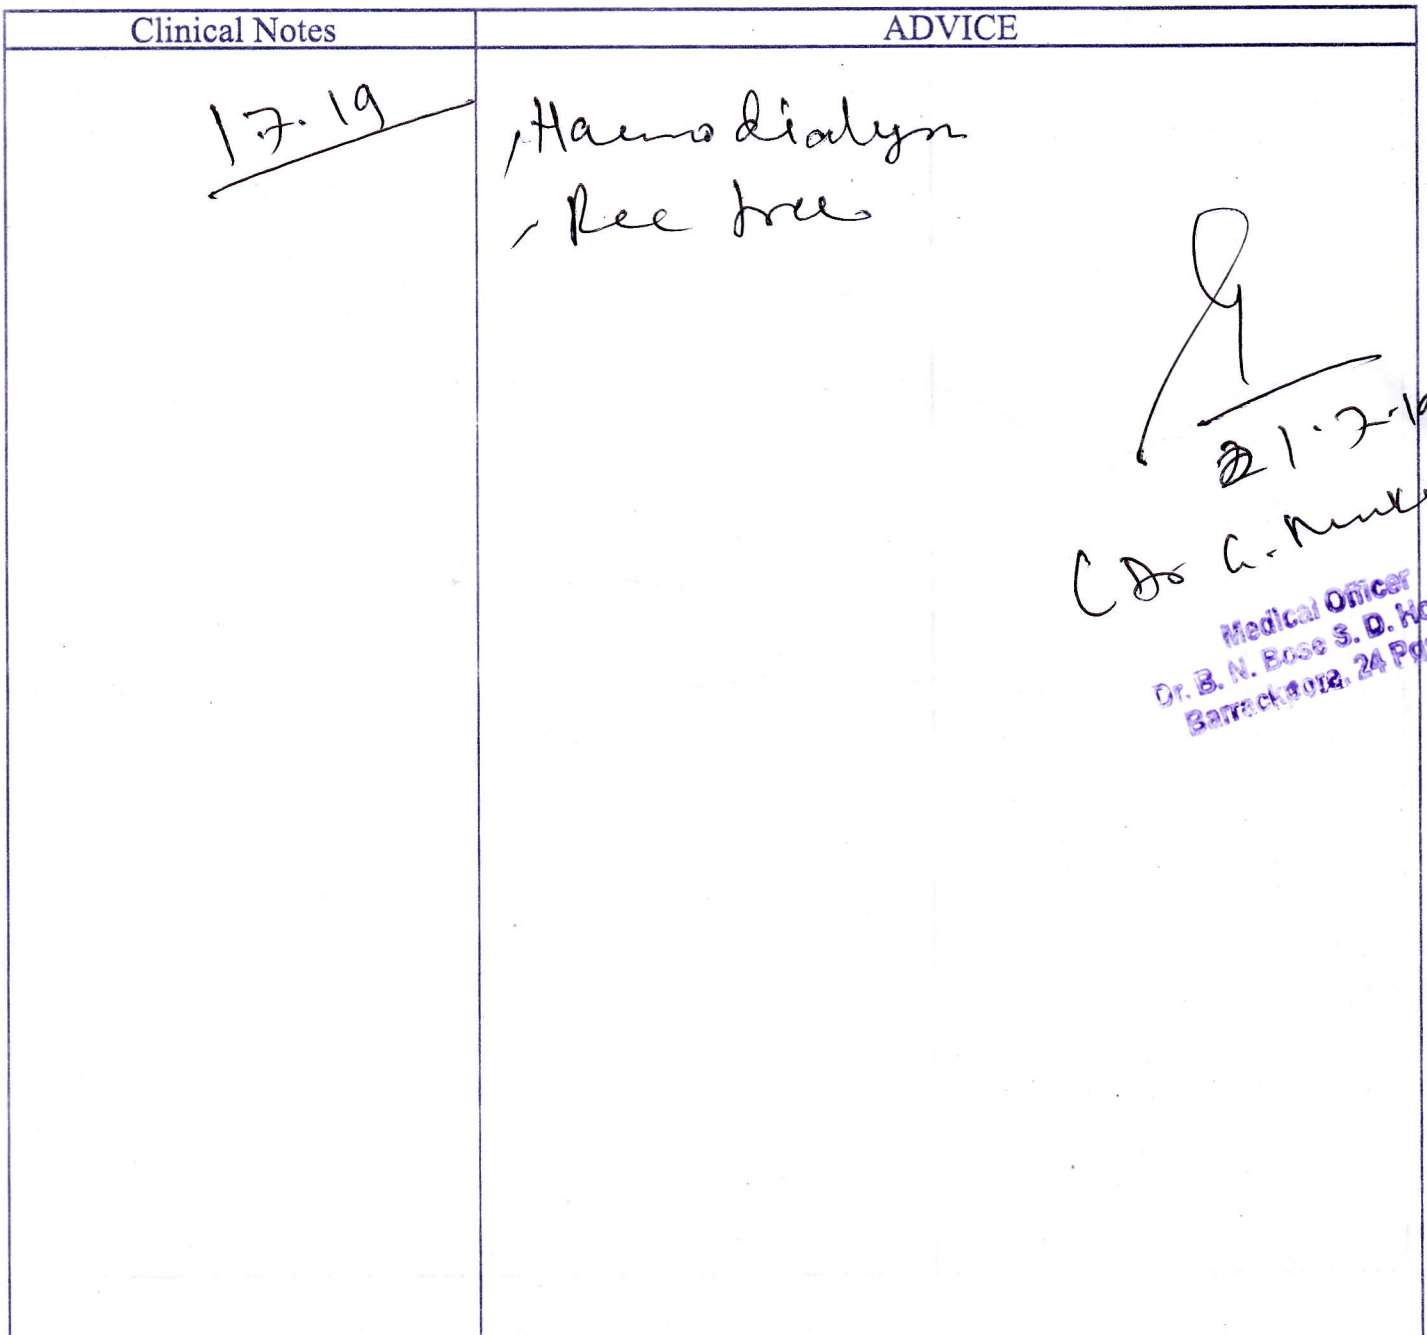 Clinical Notes
ADVICE
1.7.19
, Haemodialysis
, Rec free
21.7.19
(Dr G. Muk
Medical Officer
Dr. B. N. Bose S. D. Ho
Barrackpore, 24 Pgs